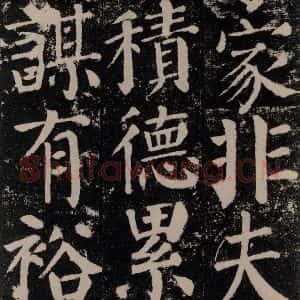 家非夫
積德累
謀有裕